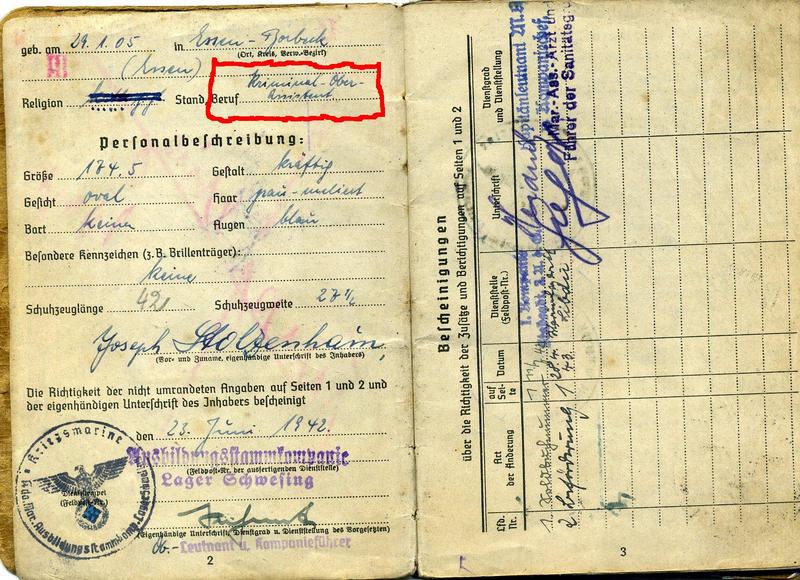 geb. am 29.1.05 in Essen-Borbeck
(Ort, Kreis, Verw.-Bezirk)
(Essen)
Religion Stand, Beruf Kriminal-Ober-
assistent
Personalbeschreibung:
Größe 174,5 Gestalt kräftig
Gesicht oval Haar grau-meliert
Bart keinen Augen blau
Besondere Kennzeichen (z. B. Brillenträger):
keine
Schuhzeuglänge 42 Schuhzeugweite 27½
Joseph Stolzenhain
(Vor- und Zuname, eigenhändige Unterschrift des Inhabers)
Die Richtigkeit der nicht umrandeten Angaben auf Seiten 1 und 2 und
der eigenhändigen Unterschrift des Inhabers bescheinigt
den 23. Juni 1942.
Ausbildungsstammkompanie
(Feldpost-Nr. der ausfertigenden Dienststelle)
Lager Schwesing
Kriegsmarine
Dienststempel
(Feldpost-Nr.)
(Eigenhändige Unterschrift, Dienstgrad u. Dienststellung des Vorgesetzten)
Ob.-Leutnant u. Kompanieführer
2
Bescheinigungen
über die Richtigkeit der Zusätze und Berichtigungen auf Seiten 1 und 2
Lfd. Nr.
Art der Änderung
auf Seite
Datum
Dienststelle (Feldpost-Nr.)
Unterschrift
Dienstgrad und Dienststellung
1. Soldbuchnummer 1
1. Kompanie
Kapitänleutnant M.A.
u. Kompaniechef
2. Beförderung 1
Mar.-Ass.-Arzt
Führer der Sanitäts
3